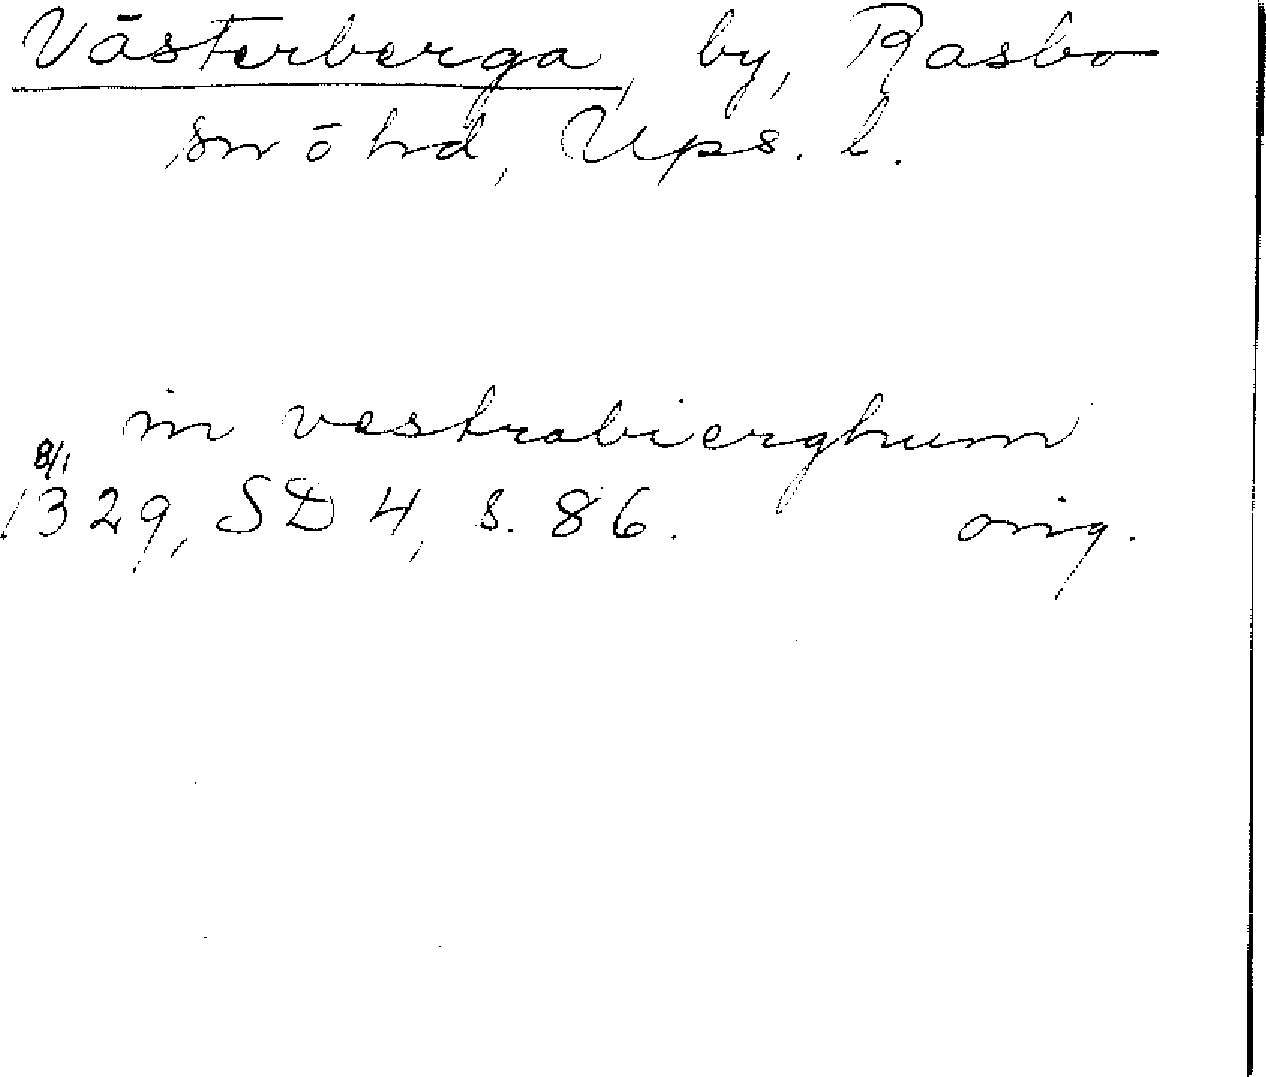 Västerberga, by, Rasbo
sn o hd, Ups. l.
in vestrabierghum
8/1
1329, SD 4, s. 86. orig.